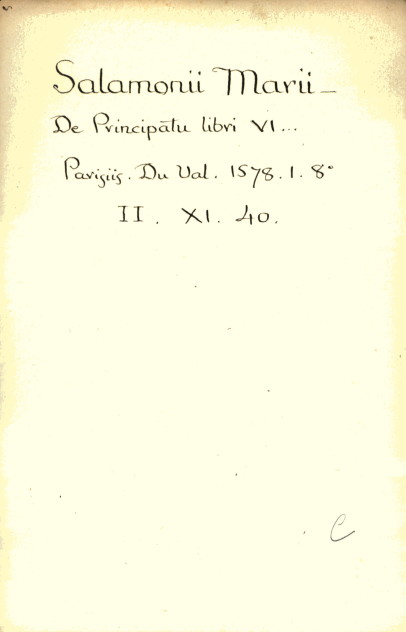 Salamonii Marii –
De Principātu libri VI...
Parisiis. Du Val. 1578. 1. 8°
II. XI. 40.
C